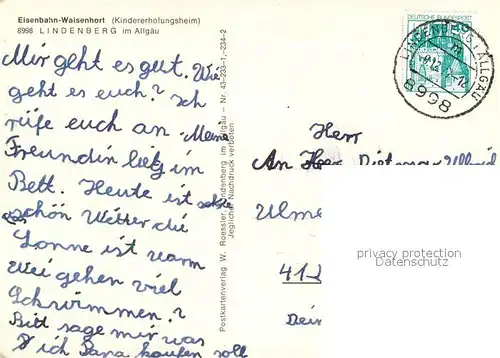 Eisenbahn-Waisenhort (Kindererholungsheim)
8998 LINDENBERG im Allgäu
Mir geht es gut. Wie
geht es euch? Ich
rufe euch an. Meine
Freundin liegt im
Bett. Heute ist sehr
schön Wetter die
Sonne ist warm
Wei gehen viel
Schwimmen?
Bitt sage mir was
ich Papa kaufen soll
Postkartenverlag W. Roessler, Lindenberg im Allgäu – Nr. 43-233-1,-234-2
Jeglicher Nachdruck verboten
DEUTSCHE BUNDESPOST
LINDENBERG i ALLGÄU
8998
Herr
An Herr Dietmar
Ulme
412
Dein
privacy protection
Datenschutz